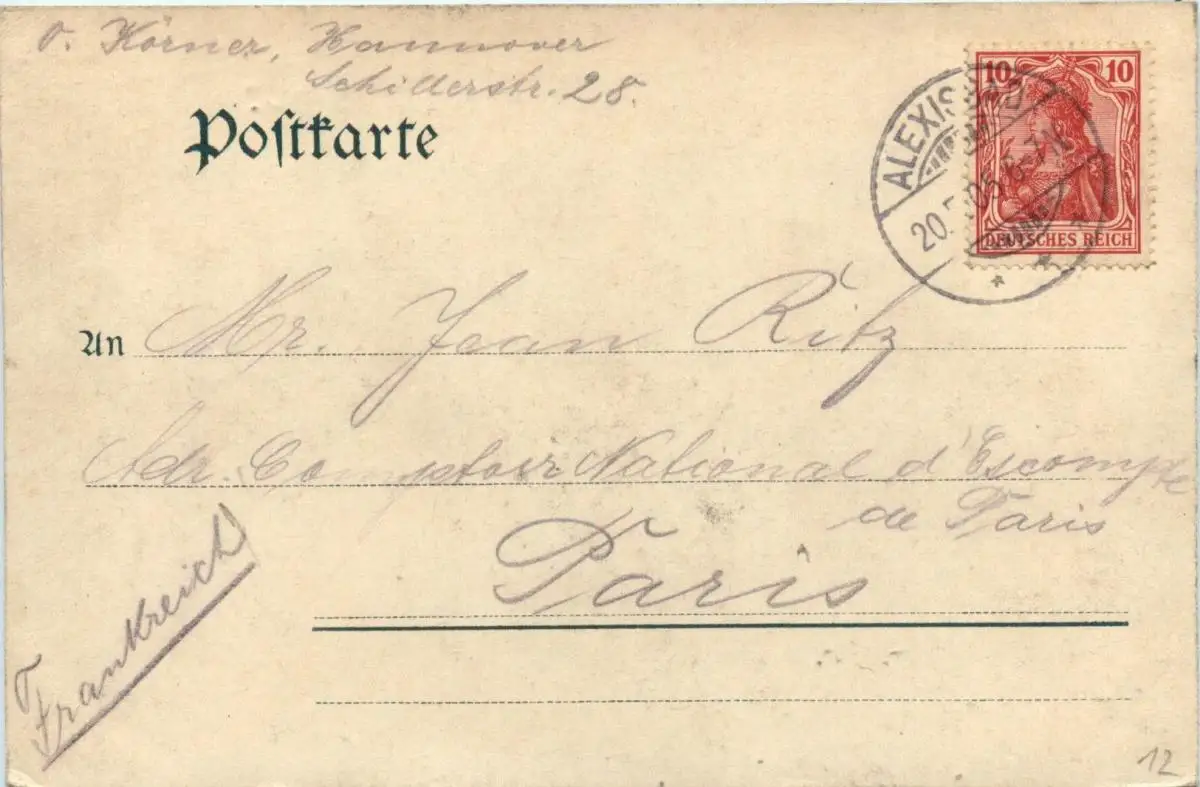 O. Körner, Hannover
Schillerstr. 28.
Postkarte
10 10
DEUTSCHES REICH
ALEXISBAD
20. 05 6-7 N
An Mr. Jean Ritz
Adr. Comptoir National d'Escompte
de Paris
Paris
Frankreich
12